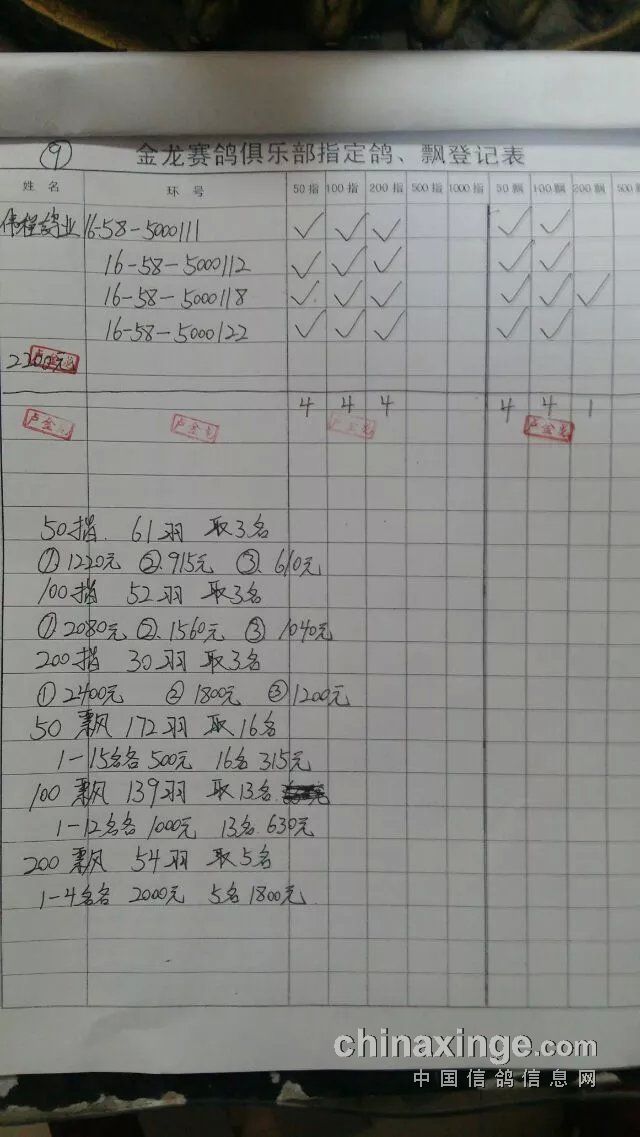 ⑨ 金龙赛鸽俱乐部指定鸽、飘登记表
姓名 环号 50指 100指 200指 500指 1000指 50飘 100飘 200飘 500
伟程鸽业 16-58-5000111 ✓ ✓ ✓ ✓ ✓
16-58-5000112 ✓ ✓ ✓ ✓ ✓
16-58-5000118 ✓ ✓ ✓ ✓ ✓ ✓
16-58-5000122 ✓ ✓ ✓ ✓ ✓
2200元
4 4 4 4 4 1
50指 61羽 取3名
①1220元 ②915元 ③610元
100指 52羽 取3名
①2080元 ②1560元 ③1040元
200指 30羽 取3名
①2400元 ②1800元 ③1200元
50飘 172羽 取16名
1-15名各500元 16名315元
100飘 139羽 取13名
1-12名各1000元 13名630元
200飘 54羽 取5名
1-4名各 2000元 5名1800元
chinaxinge.com
中国信鸽信息网